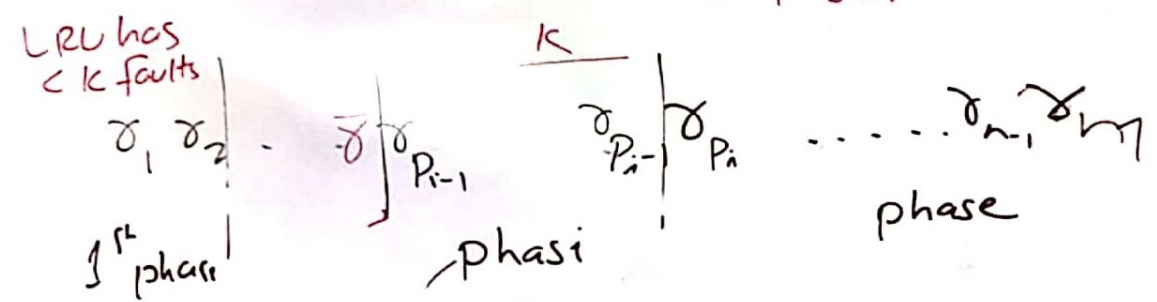 LRU has K
< K faults
γ₁ γ₂ . γ̄ γ_{P_{i-1}} γ_{P_i-1} γ_{P_i} ..... γ_{n-1} γ_m
1st phase phasi phase